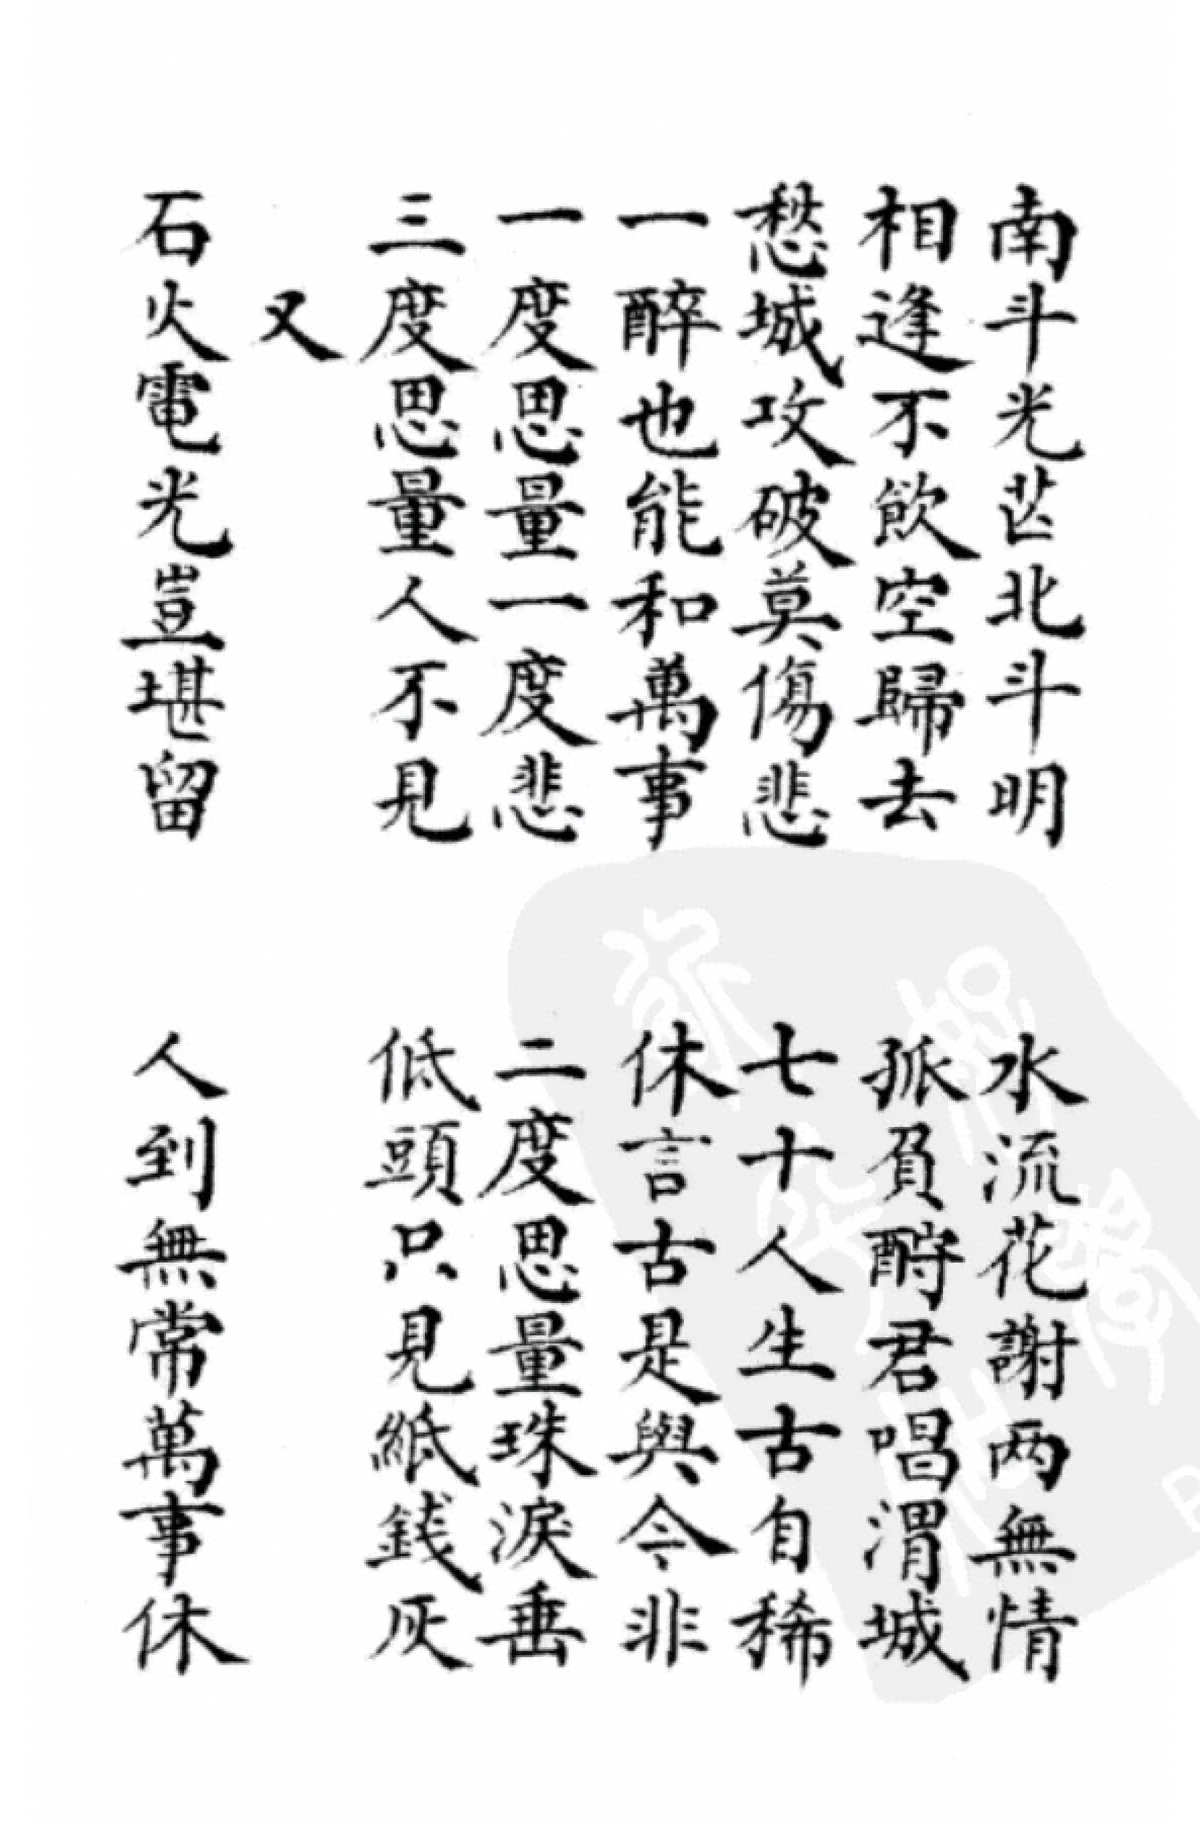 南斗光芒北斗明　水流花謝两無情
相逢不飲空歸去　孤負酧君唱渭城
愁城攻破莫傷悲　七十人生古自稀
一醉也能和萬事　休言古是與今非
一度思量一度悲　二度思量珠淚垂
三度思量人不見　低頭只見紙錢灰
又
石火電光豈堪留　人到無常萬事休